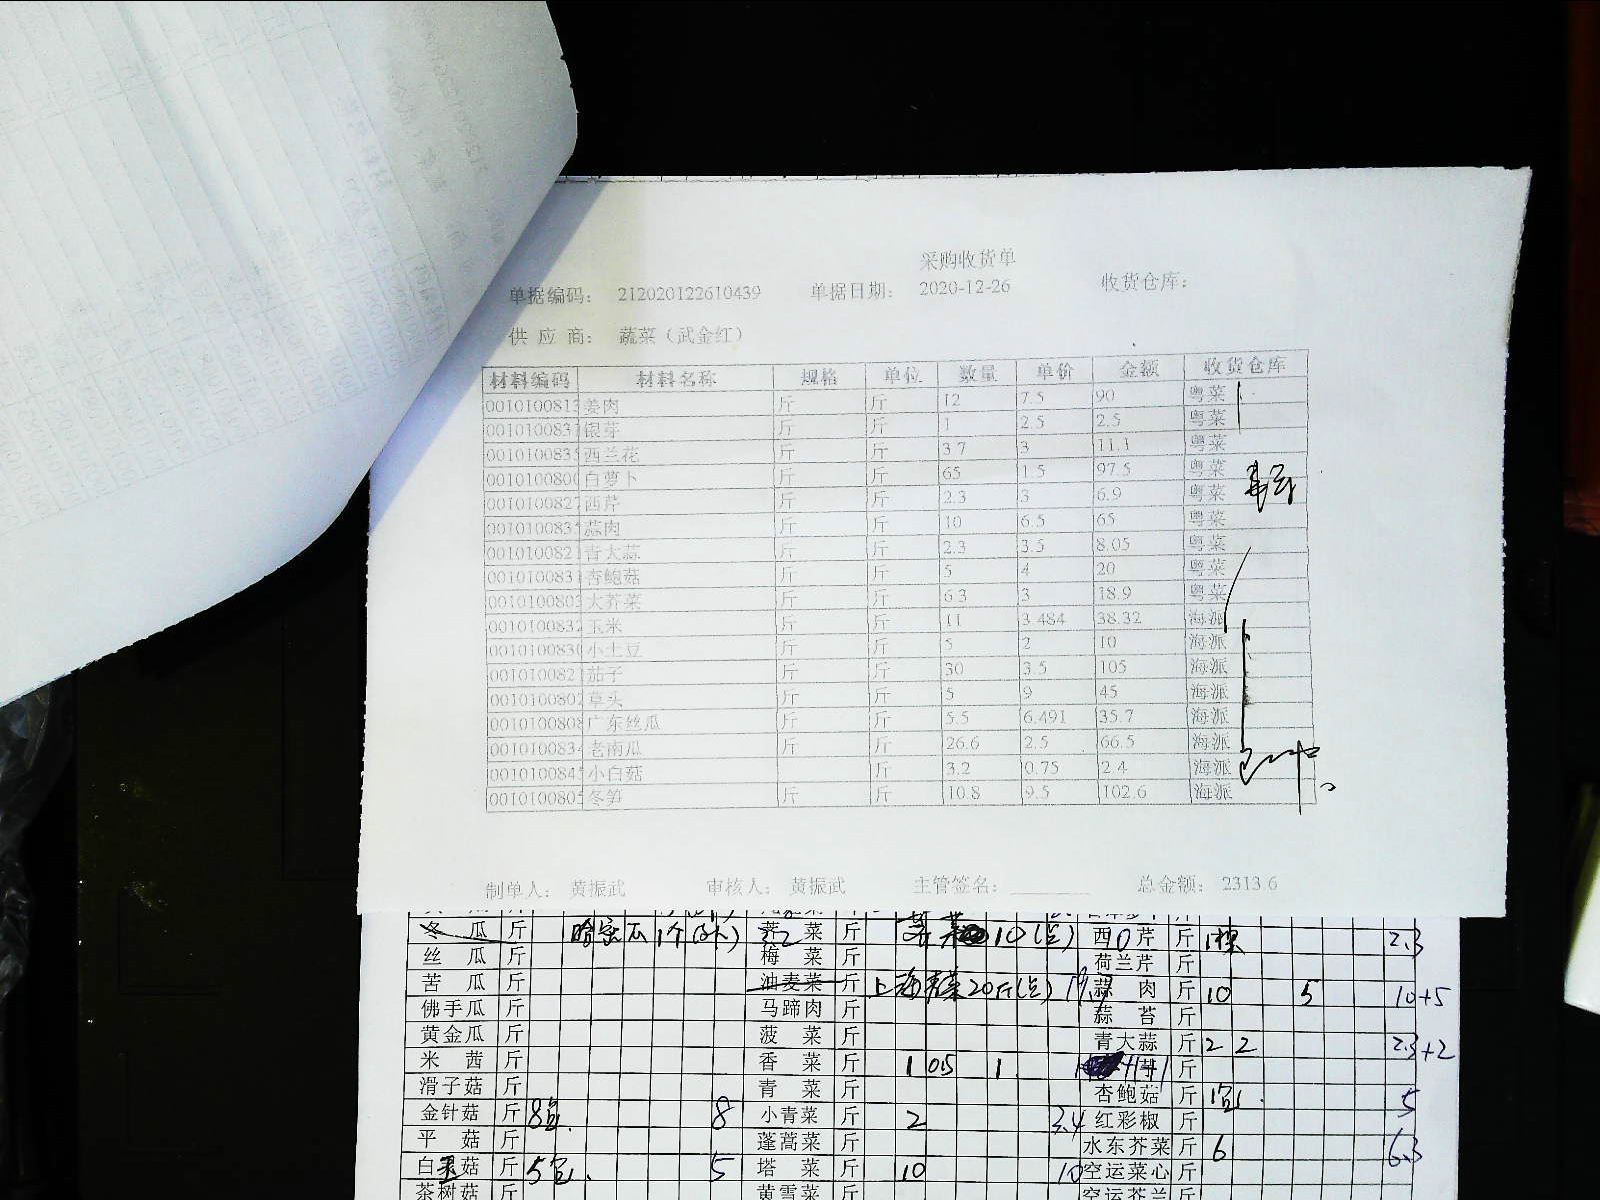 采购收货单
单据编码： 212020122610439 单据日期： 2020-12-26 收货仓库：
供 应 商： 蔬菜（武金红）
材料编码 材料名称 规格 单位 数量 单价 金额 收货仓库
0010100813 姜肉 斤 斤 12 7.5 90 粤菜
001010083 银芽 斤 斤 1 2.5 2.5 粤菜
001010083 西兰花 斤 斤 3.7 3 11.1 粤菜
001010080 白萝卜 斤 斤 65 1.5 97.5 粤菜
001010082 西芹 斤 斤 2.3 3 6.9 粤菜
001010083 蒜肉 斤 斤 10 6.5 65 粤菜
001010082 青大蒜 斤 斤 2.3 3.5 8.05 粤菜
001010083 杏鲍菇 斤 斤 5 4 20 粤菜
001010080 大芥菜 斤 斤 6.3 3 18.9 粤菜
001010083 玉米 斤 斤 11 3.484 38.32 海派
001010083 小土豆 斤 斤 5 2 10 海派
001010082 茄子 斤 斤 30 3.5 105 海派
001010080 草头 斤 斤 5 9 45 海派
001010080 广东丝瓜 斤 斤 5.5 6.491 35.7 海派
001010083 老南瓜 斤 斤 26.6 2.5 66.5 海派
001010084 小白菇 斤 3.2 0.75 2.4 海派
001010080 冬笋 斤 斤 10.8 9.5 102.6 海派
制单人： 黄振武 审核人： 黄振武 主管签名： 总金额： 2313.6
冬 瓜 斤 哈密瓜1个 菜 斤 10 西芹 斤 1棵 2.3
丝 瓜 斤 梅 菜 斤 荷兰芹 斤
苦 瓜 斤 油麦菜 斤 上海青菜20斤 蒜 肉 斤 10 5 10+5
佛手瓜 斤 马蹄肉 斤 蒜 苔 斤
黄金瓜 斤 菠 菜 斤 青大蒜 斤 2 2 2.3+2
米 茜 斤 香 菜 斤 1 0.5 1
滑子菇 斤 青 菜 斤 杏鲍菇 斤 1包 5
金针菇 斤 8包 8 小青菜 斤 2 3.4 红彩椒 斤
平 菇 斤 蓬蒿菜 斤 水东芥菜 斤 6 6.3
白 菇 斤 5包 5 塔 菜 斤 10 10 空运菜心 斤
茶树菇 斤 黄雪菜 斤 空运芥兰 斤